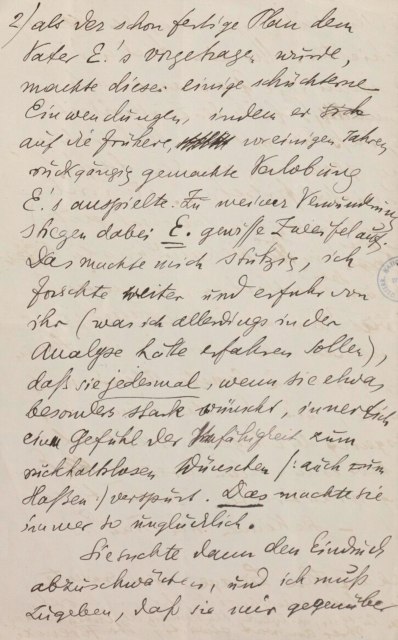 2) als der schon fertige Plan dem
Vater E.'s vorgetragen wurde,
machte dieser einige schüchterne
Einwendungen, indem er sich
auf die frühere, vor einigen Jahren
rückgängig gemachte Verlobung
E.'s anspielte. Zu meiner Verwunderung
stiegen dabei E. gewisse Zweifel auf.
Das machte mich stutzig, ich
forschte weiter und erfuhr von
ihr (was ich allerdings in der
Analyse hätte erfahren sollen),
daß sie jedesmal, wenn sie etwas
besonders stark wünscht, innerlich
ein Gefühl der Unfähigkeit zum
rückhaltslosen Wünschen (: auch zum
Hassen) verspürt. Das machte sie
immer so unglücklich.
Sie suchte dann den Eindruck
abzuschwächen, und ich muß
zugeben, daß sie mir gegenüber